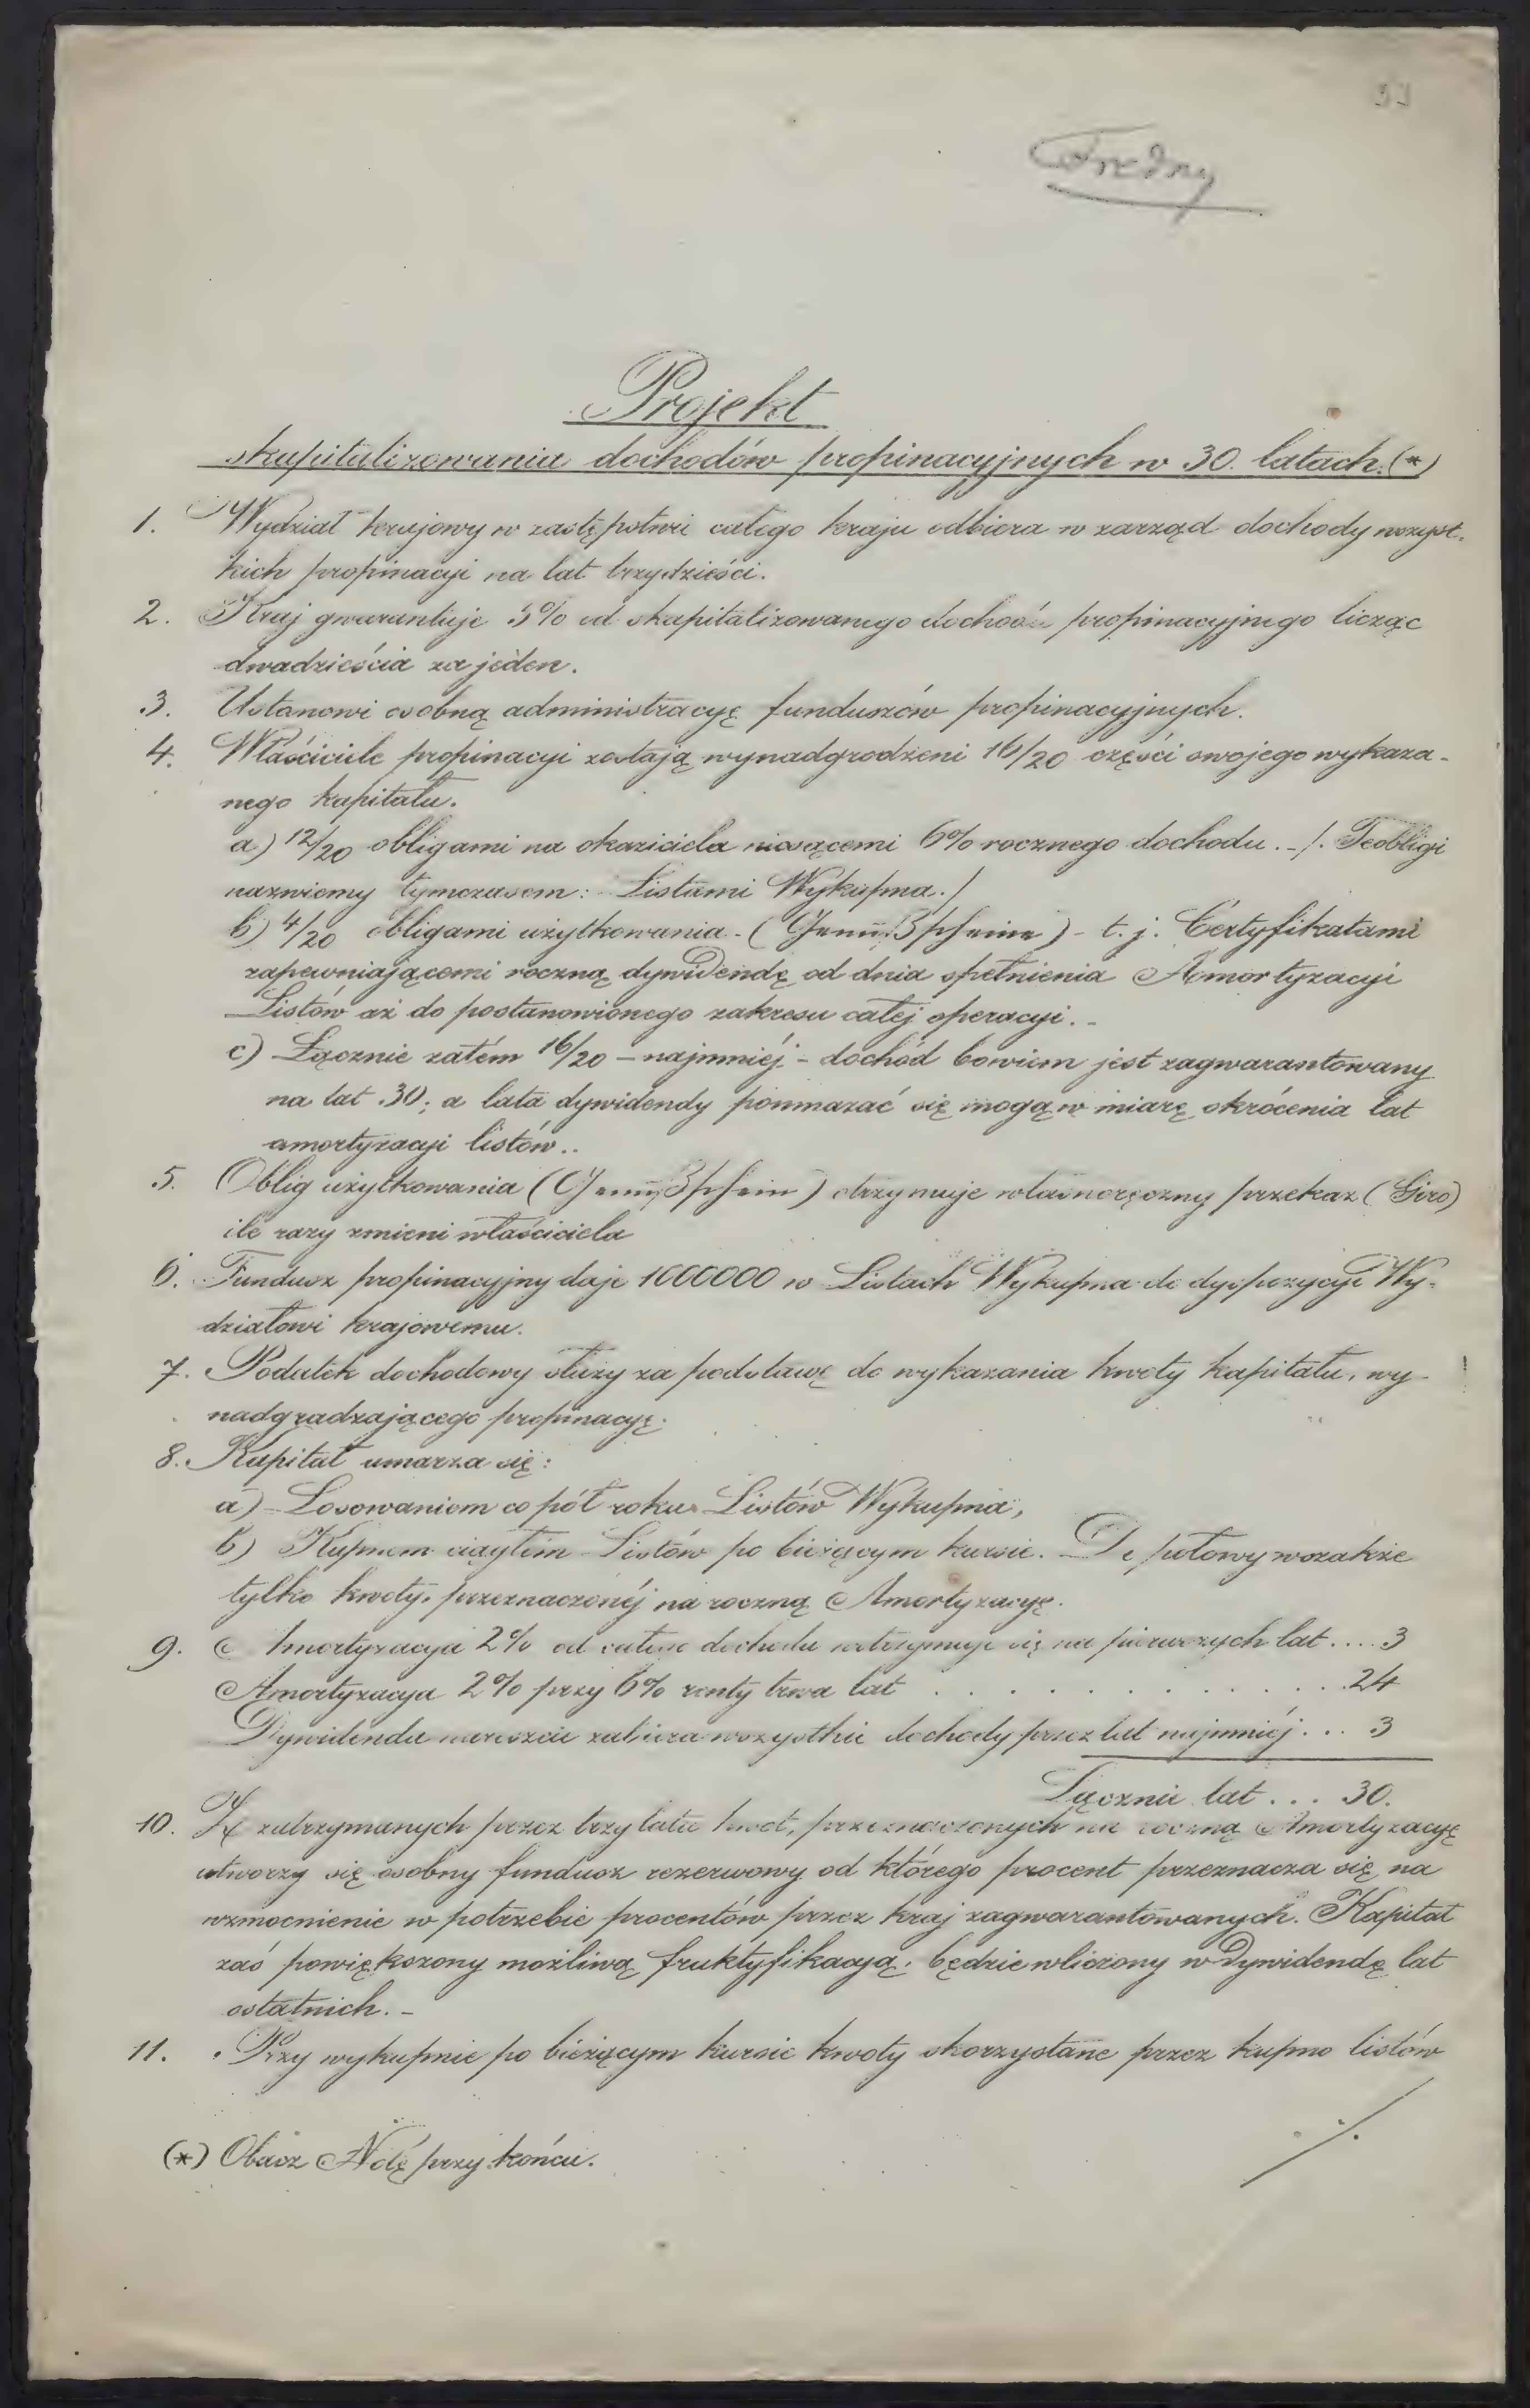 Fredry
Projekt
skapitalizowania dochodów propinacyjnych w 30. latach. (*)
1. Wydział krajowy w zastępstwie całego kraju odbiera w zarząd dochody wszyst-
kich propinacyi na lat trzydzieści.
2. Kraj gwarantuje 5% od skapitalizowanego dochodu propinacyjnego licząc
dwadzieścia za jeden.
3. Ustanowi osobną administracyę funduszów propinacyjnych.
4. Właściciele propinacyi zostają wynadgrodzeni 16/20 części swojego wykaza-
nego kapitału.
a) 12/20 obligami na okaziciela niosącemi 6% rocznego dochodu. - /. Te obligi
nazwiemy tymczasem: Listami Wykupna./
b) 4/20 obligami użytkowania - (Genußscheine) - t. j. Certyfikatami
zapewniającemi roczną dywidendę od dnia spełnienia Amortyzacyi
Listów aż do postanowionego zakresu całej operacyi. -
c) Łącznie zatém 16/20 - najmniéj - dochód bowiem jest zagwarantowany
na lat 30; a lata dywidendy pomnażać się mogą w miarę skrócenia lat
amortyzacyi listów..
5. Oblig użytkowania (Genußschein) otrzymuje własnoręczny przekaz (Giro)
ile razy zmieni właściciela
6. Fundusz propinacyjny daje 1000000 w Listach Wykupna do dyspozycyi Wy-
działowi krajowemu.
7. Podatek dochodowy służy za podstawę do wykazania kwoty kapitału, wy-
nadgradzającego propinacyę.
8. Kapitał umarza się:
a) Losowaniem co pół roku Listów Wykupna,
b) Kupnem ciągłém Listów po bieżącym kursie. Do połowy wszakże
tylko kwoty, przeznaczonéj na roczną Amortyzacyę.
9. Amortyzacya 2% od całego dochodu wstrzymuje się na pierwszych lat .... 3
Amortyzacya 2% przy 6% renty trwa lat . . . . . . . . . . 24
Dywidenda nareszcie zabiera wszystkie dochody przez lat najmniéj ... 3
Łącznie lat ... 30.
10. Z zatrzymanych przez trzy lata kwot, przeznaczonych na roczną Amortyzacyę
utworzy się osobny fundusz rezerwowy od którego procent przeznacza się na
wzmocnienie w potrzebie procentów przez kraj zagwarantowanych. Kapitał
zaś powiększony możliwą fruktyfikacyą, będzie wliczony w Dywidendę lat
ostatnich. -
11. Przy wykupnie po bieżącym kursie kwoty skorzystane przez kupno listów
./.
(*) Obacz Notę przy końcu.